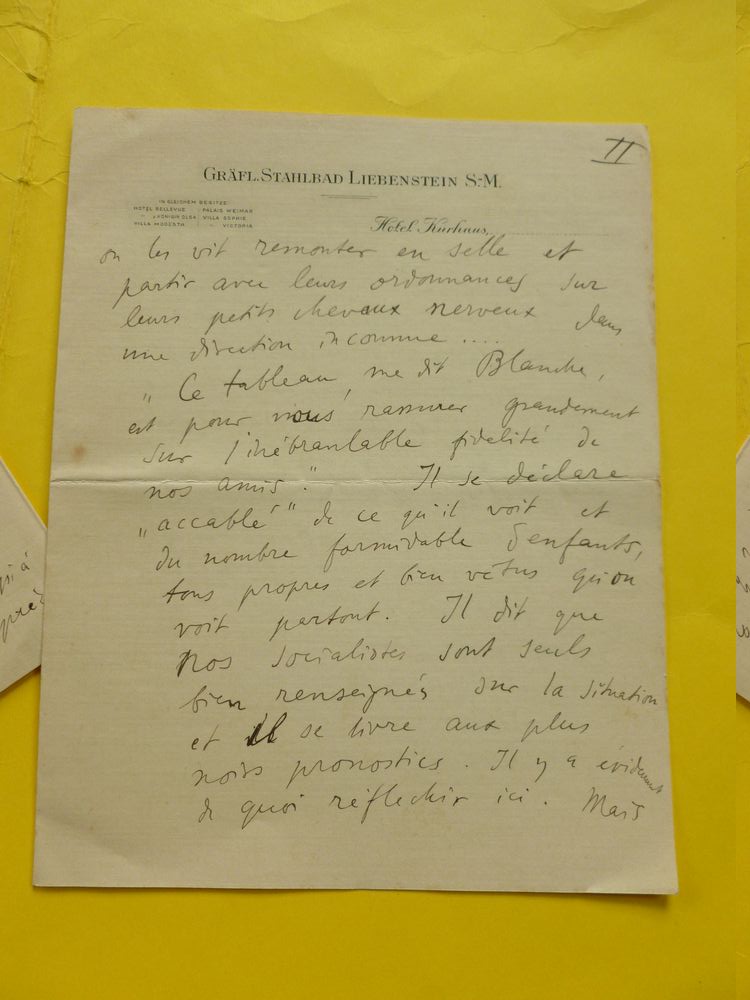 II
GRÄFL. STAHLBAD LIEBENSTEIN S.-M.
IN GLEICHEM BESITZE:
HOTEL BELLEVUE PALAIS WEIMAR
" J. KÖNIGIN OLGA VILLA SOPHIE
VILLA MODESTA " VICTORIA
Hotel Kurhaus,
on les vit remonter en selle et
partir avec leurs ordonnances sur
leurs petits chevaux nerveux dans
une direction inconnue ....
„ Ce tableau, me dit Blanche,
est pour nous rassurer grandement
sur l'inébranlable fidélité de
nos amis." Il se déclare
„accablé" de ce qu'il voit et
du nombre formidable d'enfants,
tous propres et bien vêtus qu'on
voit partout. Il dit que
nos socialistes sont seuls
bien renseignés sur la situation
et il se livre aux plus
noirs pronostics. Il y a évidemment
de quoi réflechir ici. Mais
qui à
près